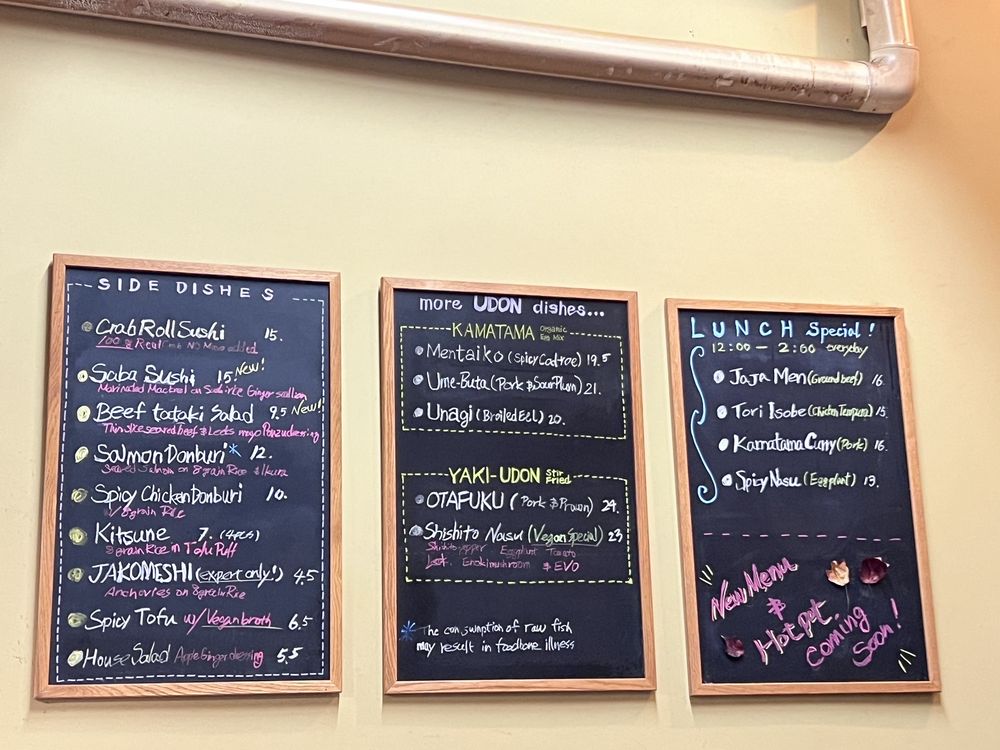 SIDE DISHES
Crab Roll Sushi 15.
100% Real Crab NO Mayo added
Saba Sushi 15 New!
Marinated Mackerel on Sushi rice Ginger scallion
Beef tataki Salad 9.5 New!
Thin slice seared beef & Leeks mayo Ponzu dressing
Salmon Donburi * 12.
Seared Salmon on 8 grain Rice & Ikura
Spicy Chicken Donburi 10.
w/ 8 grain Rice
Kitsune 7. (4pcs)
8 grain Rice in Tofu Puff
JAKOMESHI (expert only!) 4.5
Anchovies on 8 grain Rice
Spicy Tofu w/ Vegan broth 6.5
House Salad Apple Ginger dressing 5.5
more UDON dishes...
KAMATAMA Organic Egg Mix
Mentaiko (Spicy Cod roe) 19.5
Ume-Buta (Pork & Sour Plum) 21.
Unagi (Broiled Eel) 20.
YAKI-UDON Stir Fried
OTAFUKU (Pork & Prawn) 24.
Shishito Nasu (Vegan Special) 23
Shishito pepper Eggplant Tomato
Leek. Enoki mushroom & EVO
* The consumption of raw fish
may result in foodborne illness
LUNCH Special!
12:00 — 2:00 everyday
JaJa Men (Ground beef) 16.
Tori Isobe (Chicken Tempura) 15.
Kamatama Curry (Pork) 16.
Spicy Nasu (Eggplant) 13.
New Menu
&
Hot pot
coming
Soon!